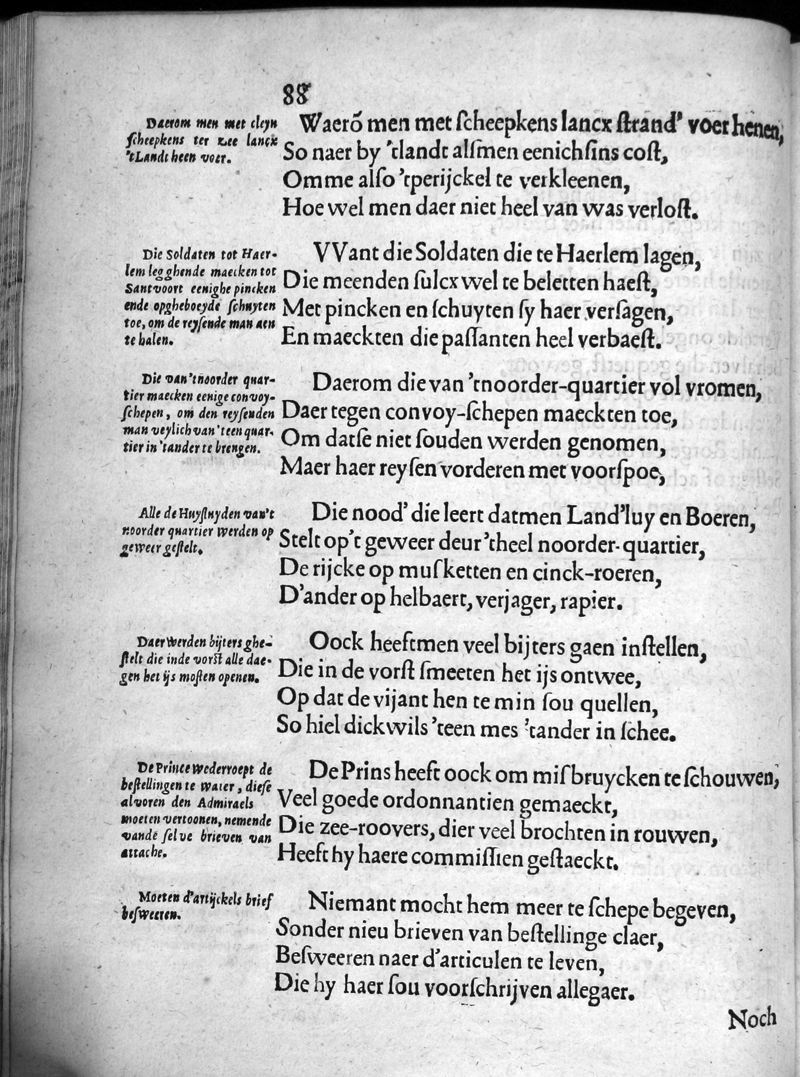 88
Daerom men met cleyn
scheepkens ter zee lancx
't Landt heen voer.
Waerõ men met scheepkens lancx strand' voer henen,
So naer by 'tlandt alsmen eenichsins cost,
Omme also 'tperijckel te verkleenen,
Hoe wel men daer niet heel van was verlost.
Die Soldaten tot Haer-
lem legghende maecken tot
Santvoort eenighe pincken
ende opgheboeyde schuyten
toe, om de reysende man aen
te halen.
VVant die Soldaten die te Haerlem lagen,
Die meenden sulcx wel te beletten haest,
Met pincken en schuyten sy haer versagen,
En maeckten die passanten heel verbaest.
Die van 'tnoorder quar-
tier maecken eenige convoy-
schepen, om den reysenden
man veylich van 't een quar-
tier in 'tander te brengen.
Daerom die van 'tnoorder-quartier vol vromen,
Daer tegen convoy-schepen maeckten toe,
Om datse niet souden werden genomen,
Maer haer reysen vorderen met voorspoe,
Alle de Huysluyden van't
noorder quartier werden op
geweer gestelt.
Die nood' die leert datmen Land'luy en Boeren,
Stelt op't geweer deur 'theel noorder-quartier,
De rijcke op musketten en cinck-roeren,
D'ander op helbaert, verjager, rapier.
Daer werden bijters ghe-
stelt die inde vorst alle dae-
gen het ijs mosten openen.
Oock heeftmen veel bijters gaen instellen,
Die in de vorst smeeten het ijs ontwee,
Op dat de vijant hen te min sou quellen,
So hiel dickwils 'teen mes 'tander in schee.
De Prince wederroept de
bestellingen te water, diese
alvoren den Admiraels
moeten vertoonen, nemende
vande selve brieven van
attache.
De Prins heeft oock om misbruycken te schouwen,
Veel goede ordonnantien gemaeckt,
Die zee-roovers, dier veel brochten in rouwen,
Heeft hy haere commissien gestaeckt.
Moeten d'artijckels brief
besweeren.
Niemant mocht hem meer te schepe begeven,
Sonder nieu brieven van bestellinge claer,
Besweeren naer d'articulen te leven,
Die hy haer sou voorschrijven allegaer.
Noch